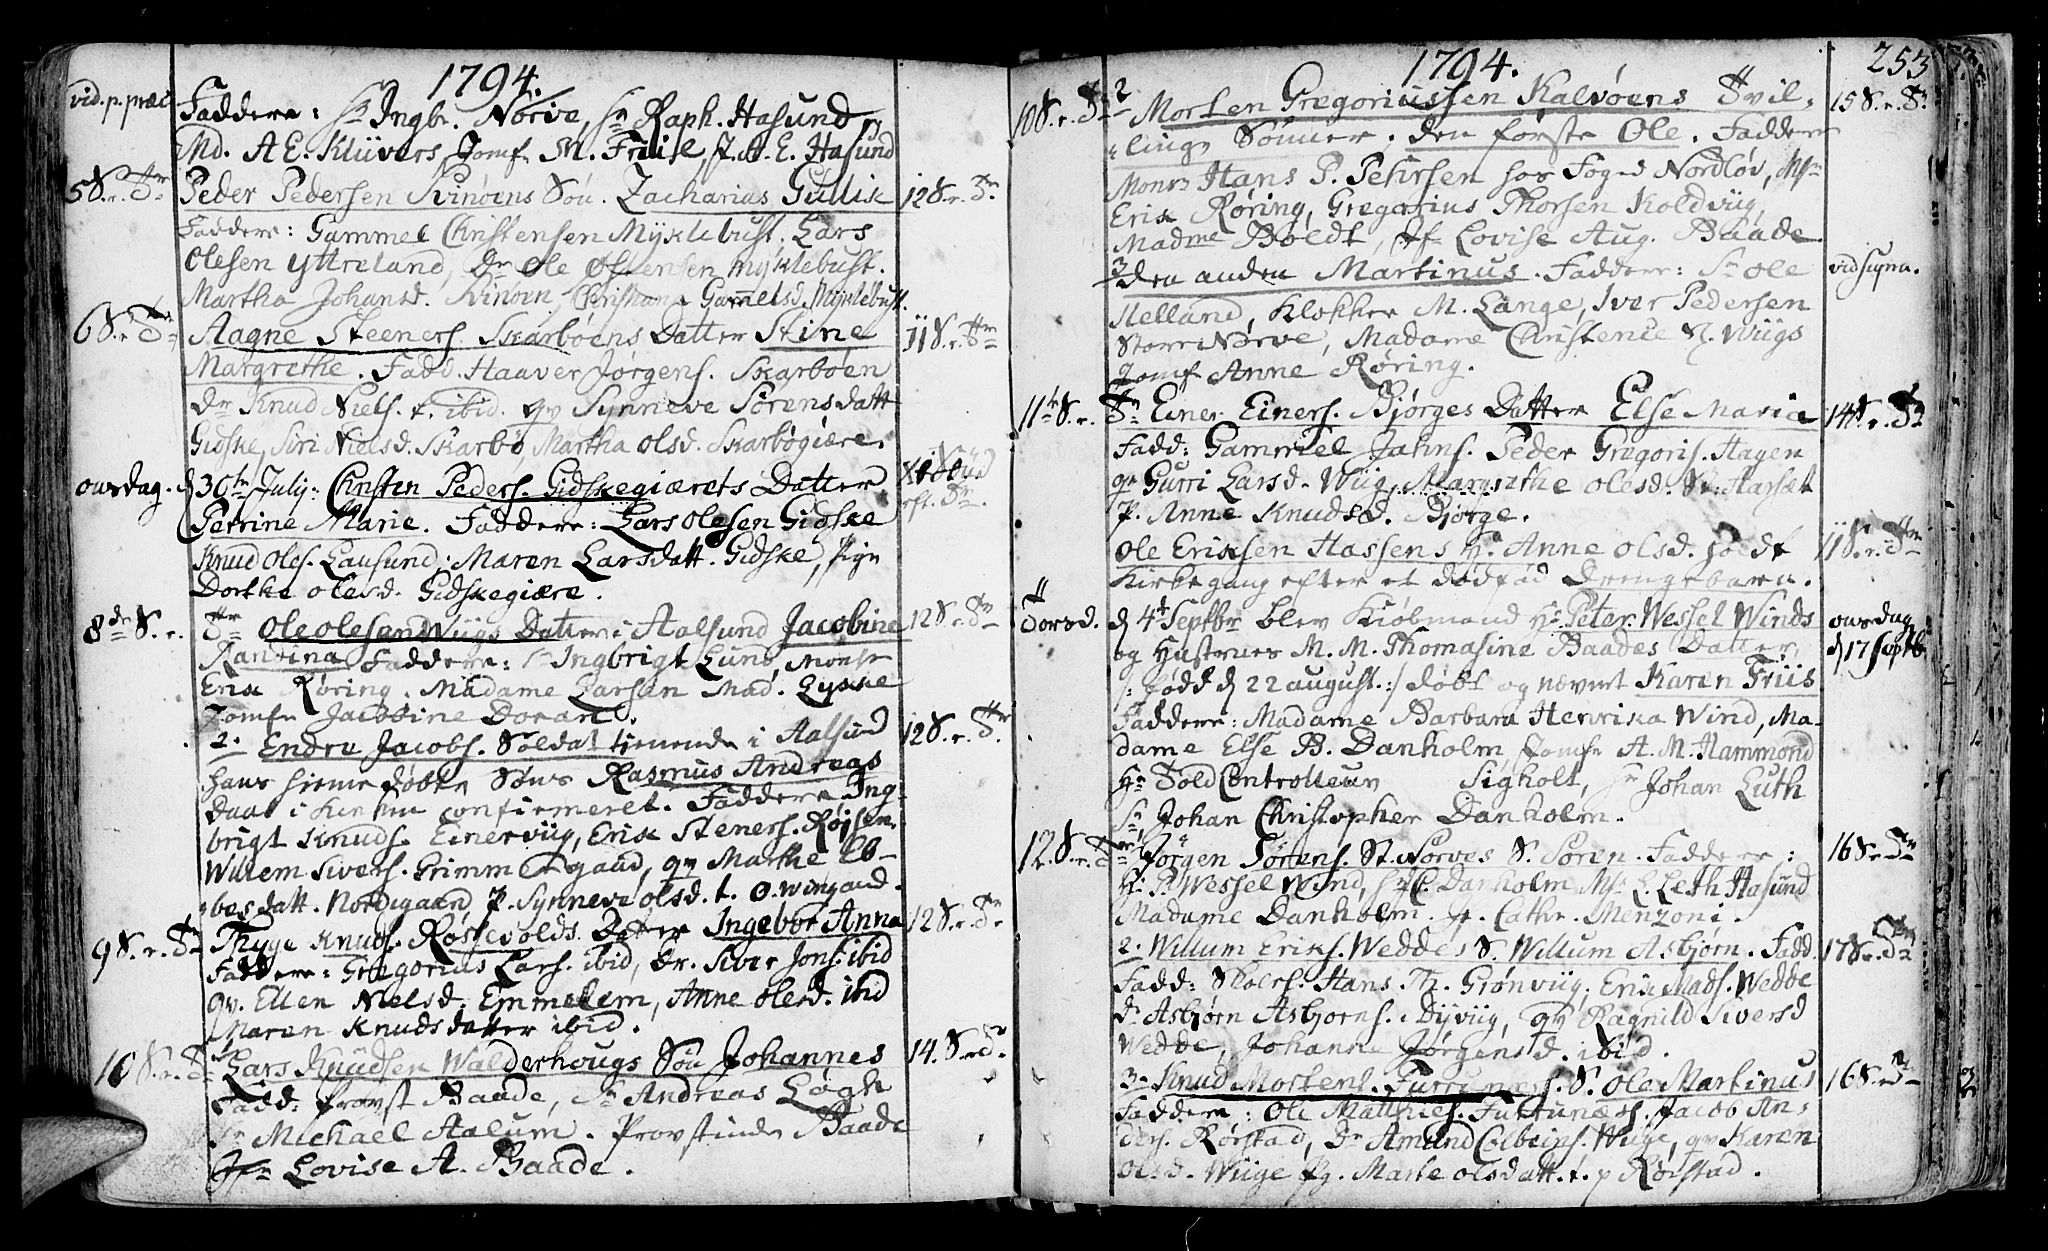 1794.
vid. p. præc
Faddere: Sr Ingbr. Nørve, Sr Raph. Hasund
Md. A E. Klüvers, Jomf. M. Friis, J. A. E. Hasund
5 S. r. Tr. Peder Pedersen Svinøens Søn. Zacharias Gullik 12 S. r. Tr.
Faddere: Gammel Christensen Myklebust. Lars
Olesen Yttreland, Dr Ole Østensen Myklebust.
Martha Johansd. Svinøen, Christiana Gammelsd. Myklebust.
6 S. r. Tr. Aagne Steeners. Skarbøens Datter Stine 11 S. r. Tr
Margrethe. Fadd. Haaver Jørgens. Skarbøen
Dr Knud Niels. t. ibid. qv Synneve Sørensdatt
Gidske, Siri Nielsd. Skarbø, Martha Olsd. Skarbøgiære.
onsdag. d 30te July: Christen Peders. Gidskegiærets Datter
Petrine Marie. Faddere: Lars Olesen Gidske eft. Tr.
Knud Oles. Lausund, Maren Larsdatt. Gidske, Pige
Dorthe Olesd. Gidskegiære.
8de S. r. Tr Ole Olesen Wiigs Datter i Aalsund Jacobine 12 S. r. Tr
Rantina Faddere: Sr Ingbrigt Lund, Monsr
Erik Røring. Madame Larsen Mad. Lyske
Jomfr Jacobine
2. Endre Jacobs. Soldat tienende i Aalsund 12 S. r. Tr.
hans hiemedøbte Søns Rasmus Andreas
Daab i Kirken confirmeret. Faddere Ing-
brigt Knuds. Einerviig, Erik Steners. Røjsen.
Willem Sivers. Grimmergaard, qv Marthe Eb-
besdatt. Nordigaard P. Synneve Olsd. t. O. Wingaard.
9 S. r. Tr Thyge Knuds. Røssevolds Datter Ingebor Anna 12 S. r. Tr
Faddere: Gregorius Lars. ibid, Dr. Siver Jons. ibid
qv. Ellen Nielsd. Emmelem, Anne Olesd. ibid
Maren Knudsdatter ibid.
10 S. r. Tr Lars Knudsen Walderhougs Søn Johannes 14. S. r. Tr.
Fadd: Provst Baade, Sr Andreas Løgh
Sr Michael Aalum. Provstinde Baade
Jfr Lovise A. Baade.
1794. 253
10 S. r. Tr 2 Morten Gregoriussen Kalvøens Tvil- 15 S. r. Tr
lings Sønner. den første Ole. Faddere
Monsr Hans P. Pehrsen hos Foged Nordløv, Msr
Erik Røring, Gregorius Thorsen Koldviig,
Madme Boldt, Jfr Lovise Aug. Baade
3 den anden Martinus. Faddere: Sr Ole vid supra.
Helland, Klokker M. Lange, Iver Pedersen
Store Nørve, Madame Christence N. Wiigs
Jomfr Anne Røring.
11te S. r. Tr Einer Einers. Bjørges Datter Else Maria 14 S. r. Tr
Fadd: Gammel Jahns. Peder Gregoris. Hagen
qv Gurri Larsd. Wiig, Margrethe Olesd. St. Harsæt
P. Anne Knudsd. Bjørge.
Ole Eriksen Hassens Ha Anne Olsd. holdt 11 S. r. Tr
Kirkegang efter et dødfød Drengebarn.
Torsd. d 4t Septbr blev Kiøbmand Hr Peter Wessel Winds onsdag
og Hustrues M. M. Thomasine Baades Datter, d 17 Septb.
/: Fødd d 22 august. :/ døbt og nævnt Karen Friis
Faddere: Madame Barbara Henrika Wind, Ma-
dame Else B. Danholm Jomfr A. M. Hammond
Hr Told Controlleur Sigholt, Sr Johan Luth
Sr Johan Christopher Danholm.
12. S. r. Tr Jörgen Sørens. St. Norves S. Søren. Faddere: 16 S. r. Tr
Hr. P. Wessel Wind, Danholm Msr L. Leth Hasund
Madame Danholm. Jf. Cathr. Menzoni.
2. Willum Eriks. Weddes S. Willum Asbjørn. Fadd 17 S. r. Tr
Fadd: Skoers. Hans Th. Grønviig. Erik Mads. Wedde
Dr Asbjørn Asbjørns. Dyviig, qv Ragnild Sivers d
Wedde, Johanna Jørgensd. ibid.
3. Knud Mortens. Furrunæss. S. Ole Martinus 16 S. r. Tr
Faddere: Ole Matthies. Furrunæss. Jacob An-
ders. Rørstad, Dr Amund Colbeins. Wiige, qv Karen
Olsd. Wiige Pg. Marte Olsdatt. t. p Rørstad.